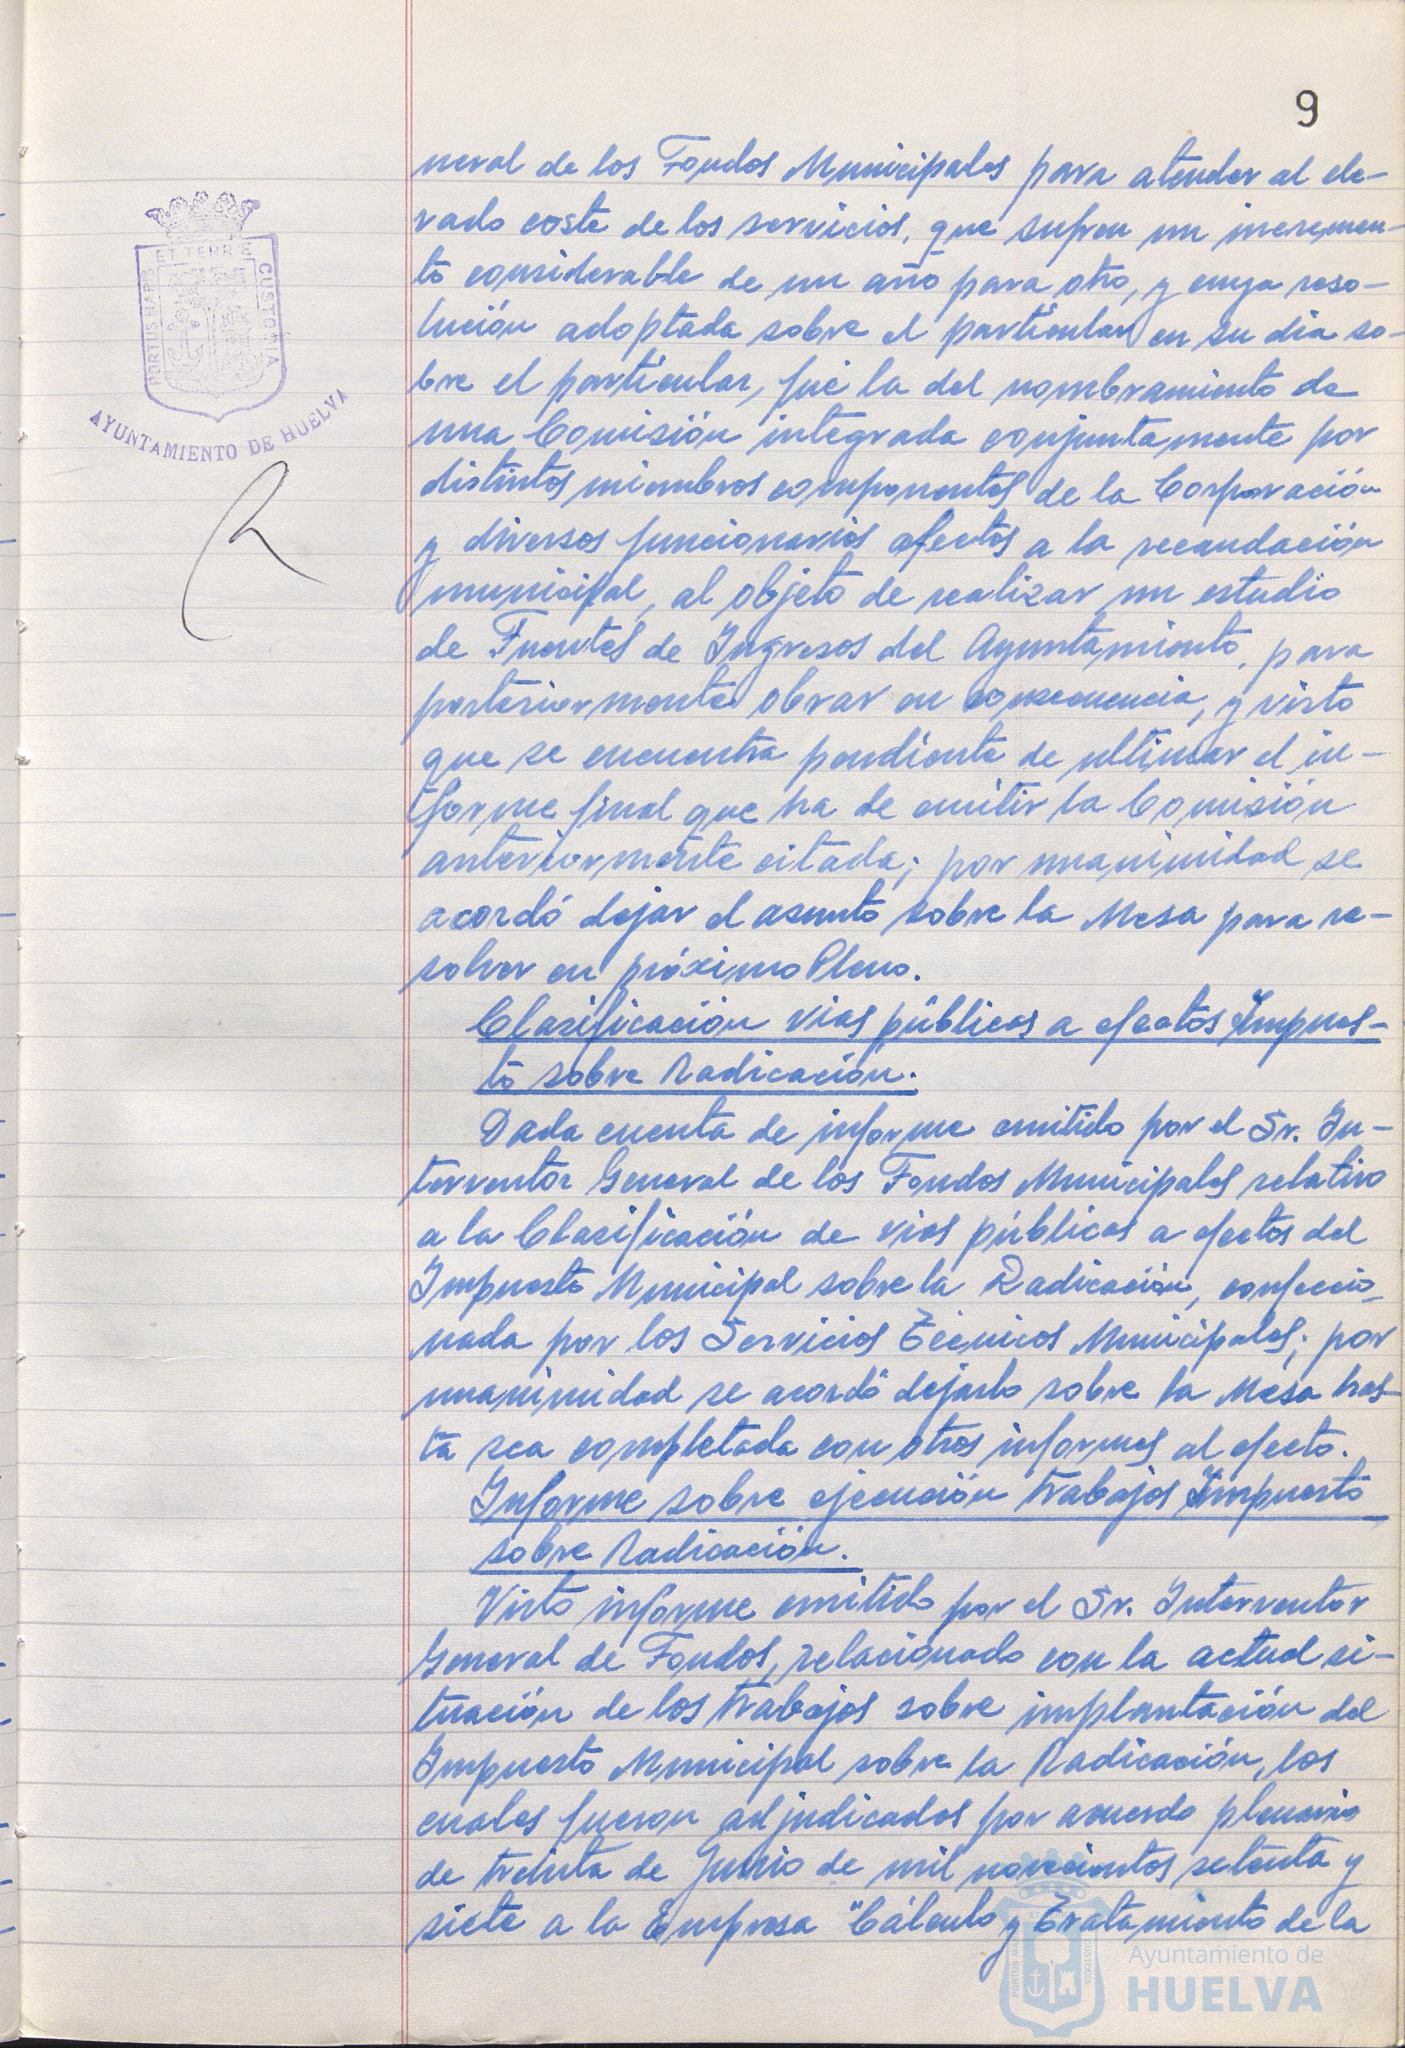 9
neral de los Fondos Municipales para atender al ele-
vado coste de los servicios, que sufren un incremen-
to considerable de un año para otro, y cuya reso-
lución adoptada sobre el particular en su dia so-
bre el particular, fué la del nombramiento de
una Comisión integrada conjuntamente por
distintos miembros componentes de la Corporación
y diversos funcionarios afectos a la recaudación
municipal, al objeto de realizar un estudio
de Fuentes de Ingresos del Ayuntamiento, para
posteriormente obrar en consecuencia, y visto
que se encuentra pendiente de ultimar el in-
forme final que ha de emitir la Comisión
anteriormente citada; por unanimidad se
acordó dejar el asunto sobre la Mesa para re-
solver en próximo Pleno.
Clasificación vias públicas a efectos Impues-
to sobre Radicación.
Dada cuenta de informe emitido por el Sr. In-
terventor General de los Fondos Municipales relativo
a la Clasificación de vias públicas a efectos del
Impuesto Municipal sobre la Radicación, confeccio-
nada por los Servicios Técnicos Municipales; por
unanimidad se acordó dejarlo sobre la Mesa has-
ta sea completada con otros informes al efecto.
Informe sobre ejecución trabajos Impuesto
sobre Radicación.
Visto informe emitido por el Sr. Interventor
General de Fondos, relacionado con la actual si-
tuación de los trabajos sobre implantación del
Impuesto Municipal sobre la Radicación, los
cuales fueron adjudicados por acuerdo plenario
de treinta de Junio de mil novecientos setenta y
siete a la Empresa "Cálculo y Tratamiento de la
PORTUS MARIS
ET TERRE
CUSTODIA
AYUNTAMIENTO DE HUELVA
Ayuntamiento de
HUELVA